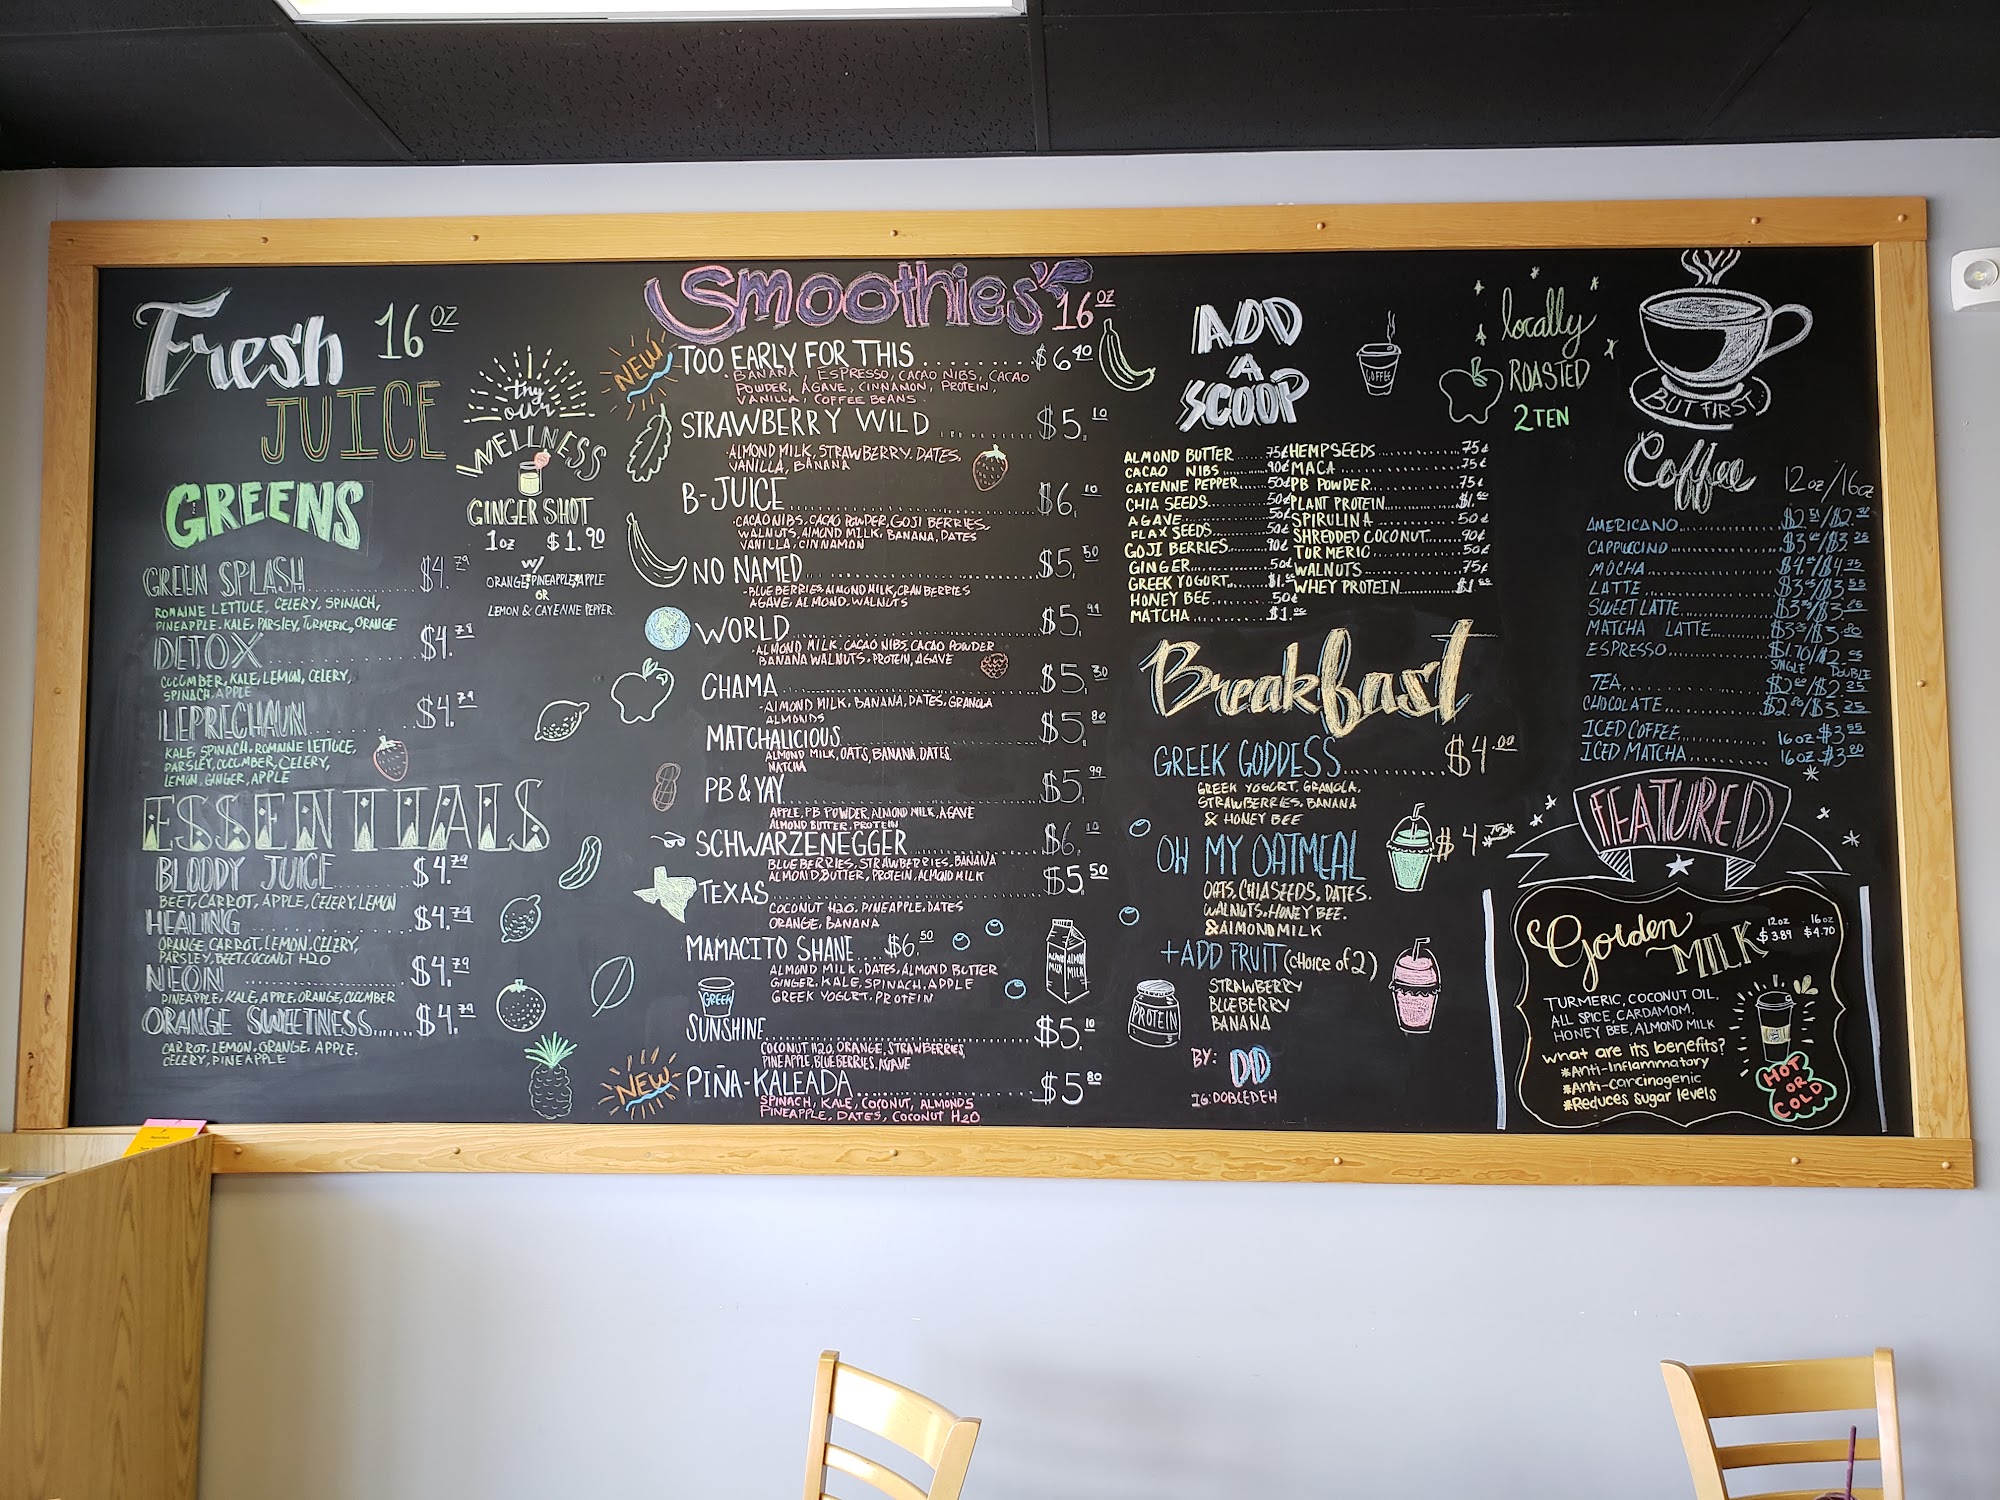 Fresh 16 OZ
JUICE
try
our
WELLNESS
GINGER SHOT
1oz $1.90
w/
ORANGE, PINEAPPLE, APPLE
OR
LEMON & CAYENNE PEPPER
GREENS
GREEN SPLASH $4.79
ROMAINE LETTUCE, CELERY, SPINACH,
PINEAPPLE, KALE, PARSLEY, TURMERIC, ORANGE
DETOX $4.79
CUCUMBER, KALE, LEMON, CELERY,
SPINACH, APPLE
LEPRECHAUN $4.79
KALE, SPINACH, ROMAINE LETTUCE,
PARSLEY, CUCUMBER, CELERY,
LEMON, GINGER, APPLE
ESSENTIALS
BLOODY JUICE $4.79
BEET, CARROT, APPLE, CELERY, LEMON
HEALING $4.79
ORANGE, CARROT, LEMON, CELERY,
PARSLEY, BEET, COCONUT H2O
NEON $4.79
PINEAPPLE, KALE, APPLE, ORANGE, CUCUMBER
ORANGE SWEETNESS $4.79
CARROT, LEMON, ORANGE, APPLE,
CELERY, PINEAPPLE
Smoothies 16 OZ
NEW
TOO EARLY FOR THIS $6.40
BANANA, ESPRESSO, CACAO NIBS, CACAO
POWDER, AGAVE, CINNAMON, PROTEIN,
VANILLA, COFFEE BEANS
STRAWBERRY WILD $5.10
ALMOND MILK, STRAWBERRY, DATES,
VANILLA, BANANA
B-JUICE $6.10
CACAO NIBS, CACAO POWDER, GOJI BERRIES,
WALNUTS, ALMOND MILK, BANANA, DATES
VANILLA, CINNAMON
NO NAMED $5.50
BLUEBERRIES, ALMOND MILK, CRANBERRIES
AGAVE, ALMOND, WALNUTS
WORLD $5.99
ALMOND MILK, CACAO NIBS, CACAO POWDER
BANANA WALNUTS, PROTEIN, AGAVE
CHAMA $5.30
ALMOND MILK, BANANA, DATES, GRANOLA
ALMONDS
MATCHALICIOUS $5.80
ALMOND MILK, OATS, BANANA, DATES,
MATCHA
PB & YAY $5.99
APPLE, PB POWDER, ALMOND MILK, AGAVE
ALMOND BUTTER, PROTEIN
SCHWARZENEGGER $6.10
BLUEBERRIES, STRAWBERRIES, BANANA
ALMOND BUTTER, PROTEIN, ALMOND MILK
TEXAS $5.50
COCONUT H2O, PINEAPPLE, DATES
ORANGE, BANANA
MAMACITO SHANE $6.50
ALMOND MILK, DATES, ALMOND BUTTER
GINGER, KALE, SPINACH, APPLE
GREEK YOGURT, PROTEIN
GREEK
ALMOND MILK
SUNSHINE $5.10
COCONUT H2O, ORANGE, STRAWBERRIES,
PINEAPPLE, BLUEBERRIES, AGAVE
NEW
PIÑA-KALEADA $5.80
SPINACH, KALE, COCONUT, ALMONDS
PINEAPPLE, DATES, COCONUT H2O
ADD
A
SCOOP
COFFEE
ALMOND BUTTER 75¢
CACAO NIBS 90¢
CAYENNE PEPPER 50¢
CHIA SEEDS 50¢
AGAVE 50¢
FLAX SEEDS 50¢
GOJI BERRIES 90¢
GINGER 50¢
GREEK YOGURT
HONEY BEE 50¢
MATCHA
HEMPSEEDS 75¢
MACA 75¢
PB POWDER 75¢
PLANT PROTEIN
SPIRULINA 50¢
SHREDDED COCONUT 90¢
TURMERIC 50¢
WALNUTS 75¢
WHEY PROTEIN
Breakfast
GREEK GODDESS $4.00
GREEK YOGURT, GRANOLA,
STRAWBERRIES, BANANA
& HONEY BEE
OH MY OATMEAL $4.75
OATS, CHIA SEEDS, DATES,
WALNUTS, HONEY BEE,
& ALMOND MILK
+ADD FRUIT (choice of 2)
STRAWBERRY
BLUEBERRY
BANANA
PROTEIN
BY: DD
IG: DOBLEDEH
locally
ROASTED
2TEN
BUT FIRST,
Coffee 12oz/16oz
AMERICANO
CAPPUCCINO
MOCHA
LATTE
SWEET LATTE
MATCHA LATTE
ESPRESSO
SINGLE DOUBLE
TEA
CHOCOLATE
ICED COFFEE 16oz $3.55
ICED MATCHA 16oz $3.80
FEATURED
Golden MILK
12oz $3.89 16oz $4.70
TURMERIC, COCONUT OIL,
ALL SPICE, CARDAMOM,
HONEY BEE, ALMOND MILK
what are its benefits?
*Anti-Inflammatory
*Anti-carcinogenic
*Reduces sugar levels
HOT
OR
COLD